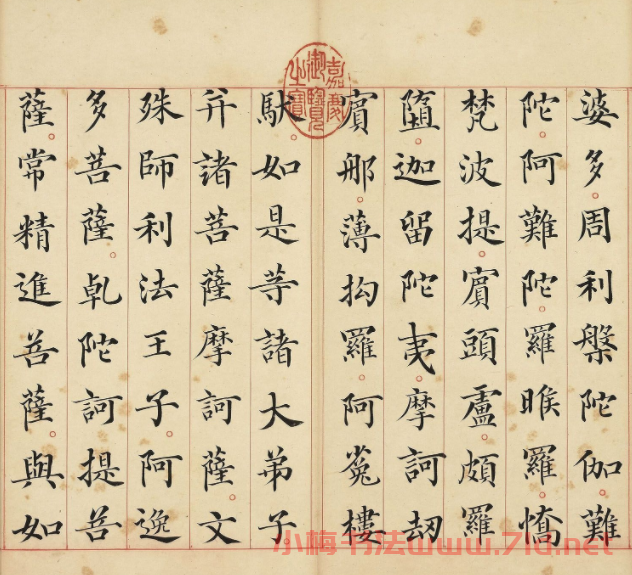 婆多。周利槃陀伽。難
陀。阿難陀。羅睺羅。憍
梵波提。賓頭盧。頗羅
墮。迦留陀夷。摩訶劫
賓那。薄拘羅。阿㝹樓
馱。如是等諸大弟子。
并諸菩薩摩訶薩。文
殊師利法王子。阿逸
多菩薩。乾陀訶提菩
薩。常精進菩薩。與如
嘉慶御覽之寶
小梅书法www.71d.net